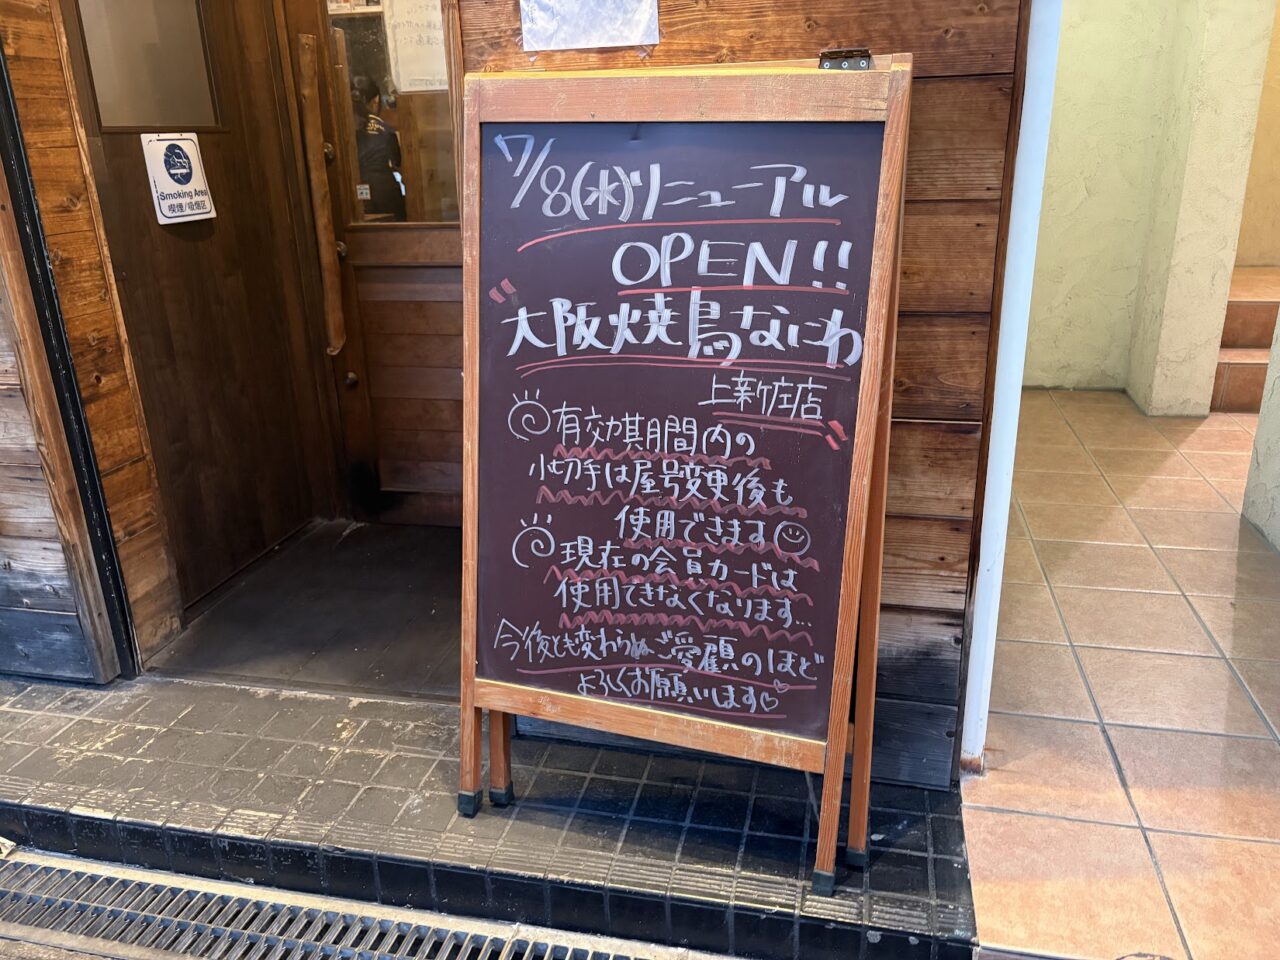 7/8(水)リニューアル
OPEN!!
"大阪焼鳥なにわ
上新庄店"
有効期間内の
小切手は屋号変更後も
使用できます
現在の会員カードは
使用できなくなります...
今後とも変わらぬご愛顧のほど
よろしくお願いします♡
Smoking Area
喫煙/吸烟区